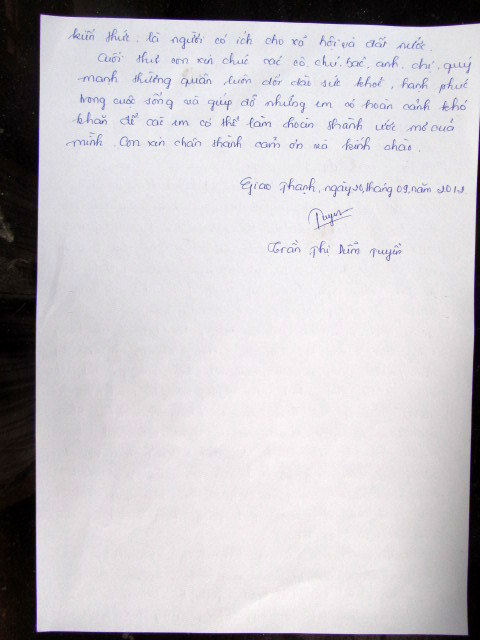 kiến thức. là người có ích cho xã hội và đất nước.
Cuối thư con xin chúc các cô, chú, bác, anh, chị, quý
mạnh thường quân luôn dồi dào sức khoẻ, hạnh phúc
trong cuộc sống và giúp đỡ những em có hoàn cảnh khó
khăn để các em có thể làm hoàn thành ước mơ của
mình. Con xin chân thành cảm ơn và kính chào.
Giao Thạnh, ngày 20, tháng 09, năm 2012
Tuyền
Trần Thị Diễm Tuyền